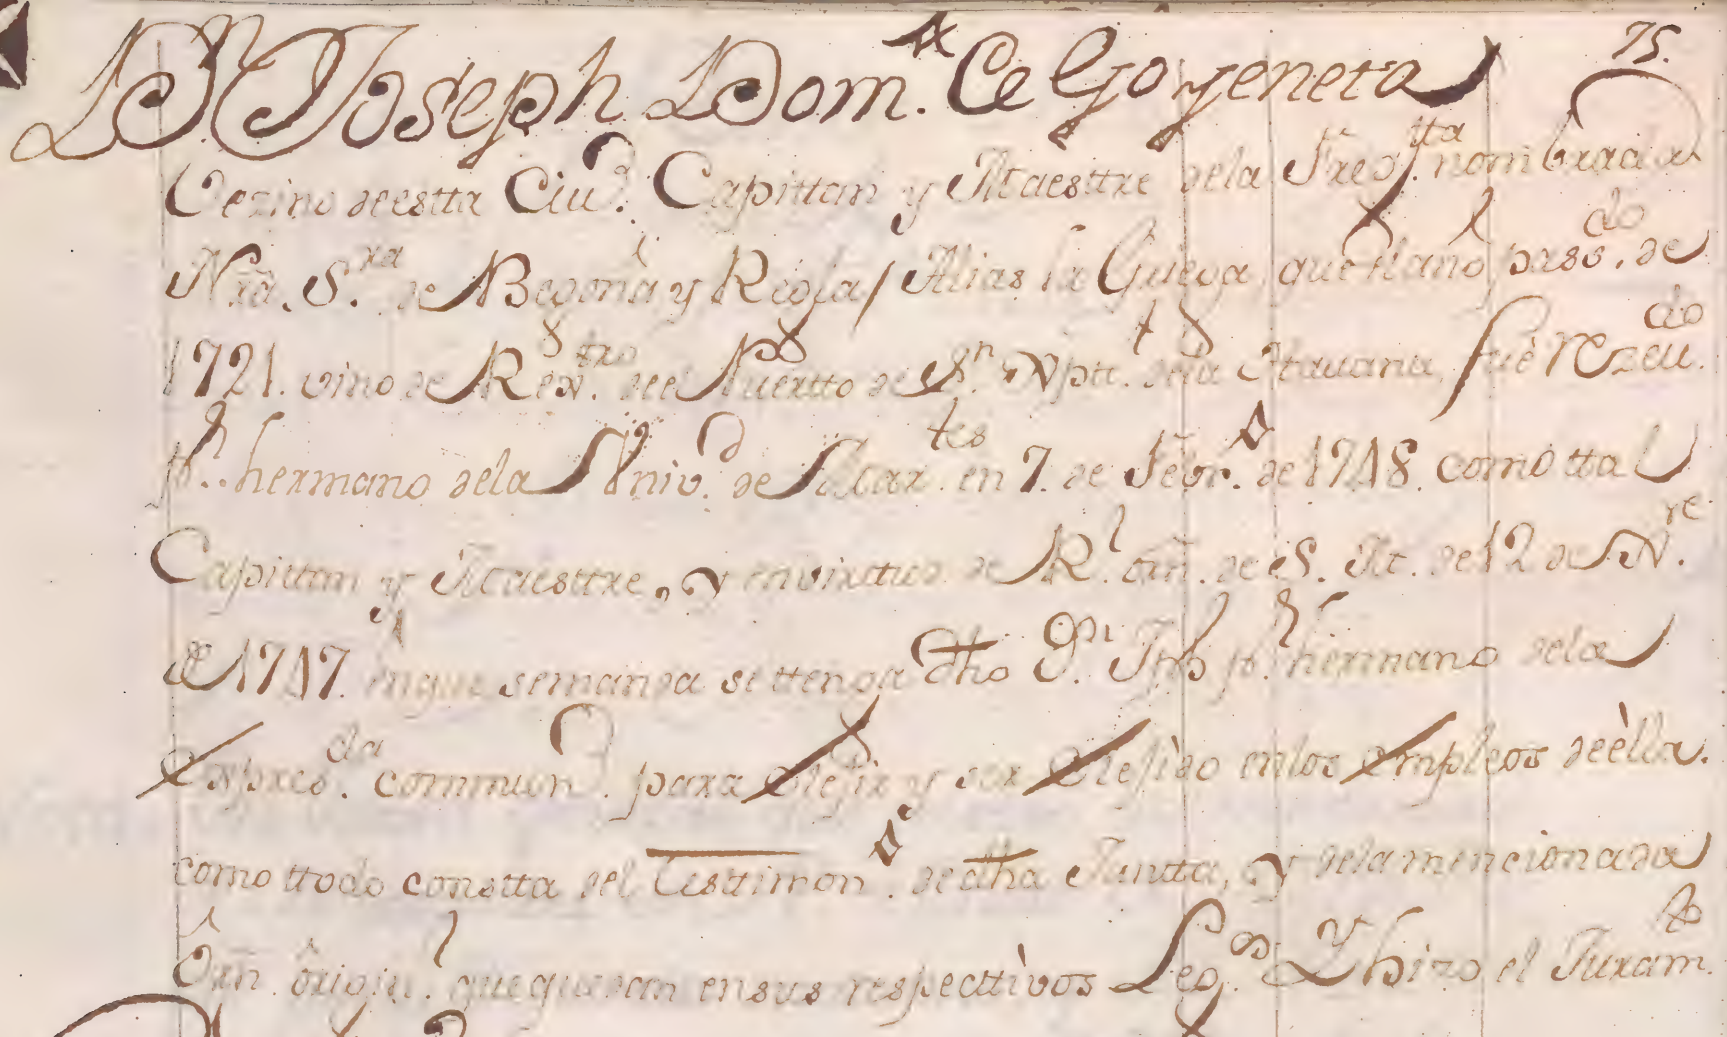 75.
Dn Joseph Dom.o de Goyeneta
Vezino de estta Ciud. Capittan y Maesttre de la Fregtta nombrada
Nra. S.ra de Begoña y Regla / Alias la Griega que el año passdo. de
1721. vino de Regtro. de el Puertto de Sn. Xptt.l dela Hauana, fue rezeuido
pr. hermano dela Univd. de Martes. en 7. de Febro. de 1718. como ttal
Capittan y Maesttre, y en virttud. de Rl. orn. de S. M. de 12 de Nre.
de 1717. en que se manda se ttenga dho Dn. Jph pr. hermano dela
expresda. commund. para elejir y ser elejido en los empleos de èlla.
como ttodo constta del Testtimono. de dha Juntta, y dela mencionada
Ôrn. ôriginl. que quedan en sus respecttìvos Legos. Y hizo el Juramto.